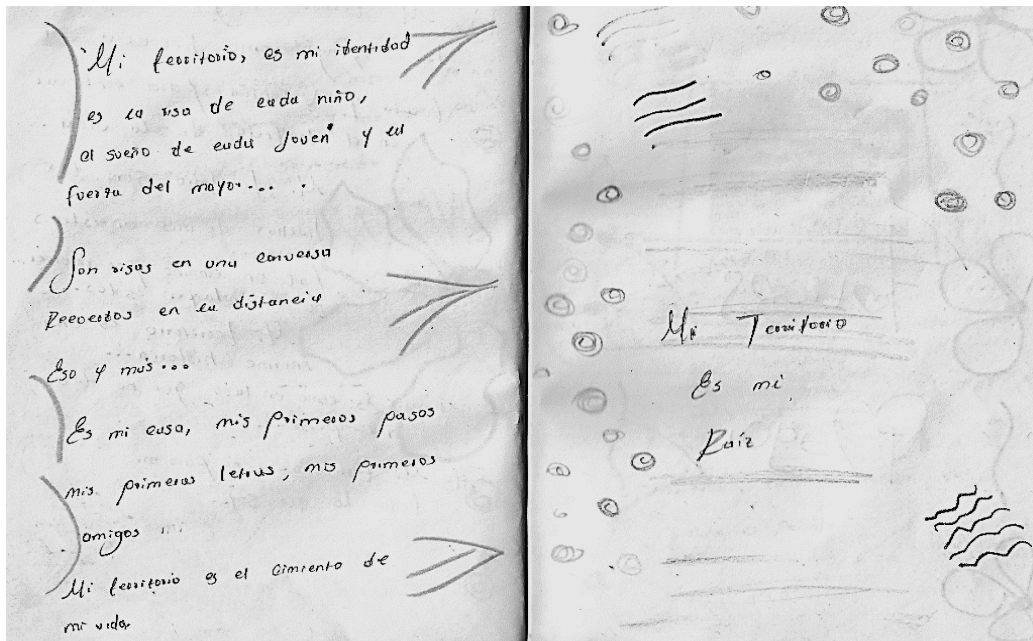 Mi territorio, es mi identidad
es la risa de cada niño,
el sueño de cada joven y la
fuerza del mayor.....
Son risas en una conversa
Recuerdos en la distancia
Eso y mas...
Es mi casa, mis primeros pasos
mis primeras letras, mis primeros
amigos ...
Mi territorio es el cimiento de
mi vida.
Mi Territorio
Es mi
Raíz